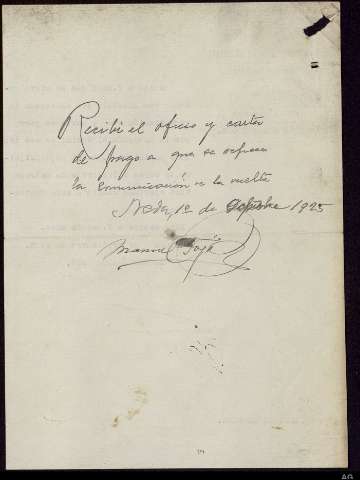 Recibí el oficio y carta
de pago a que se refiere
la comunicación a la vuelta
Neda, 1º de Octubre 1925
Manuel Tojo
AG